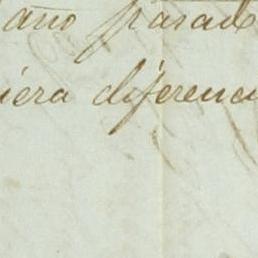 ano pasado
iera diferenci